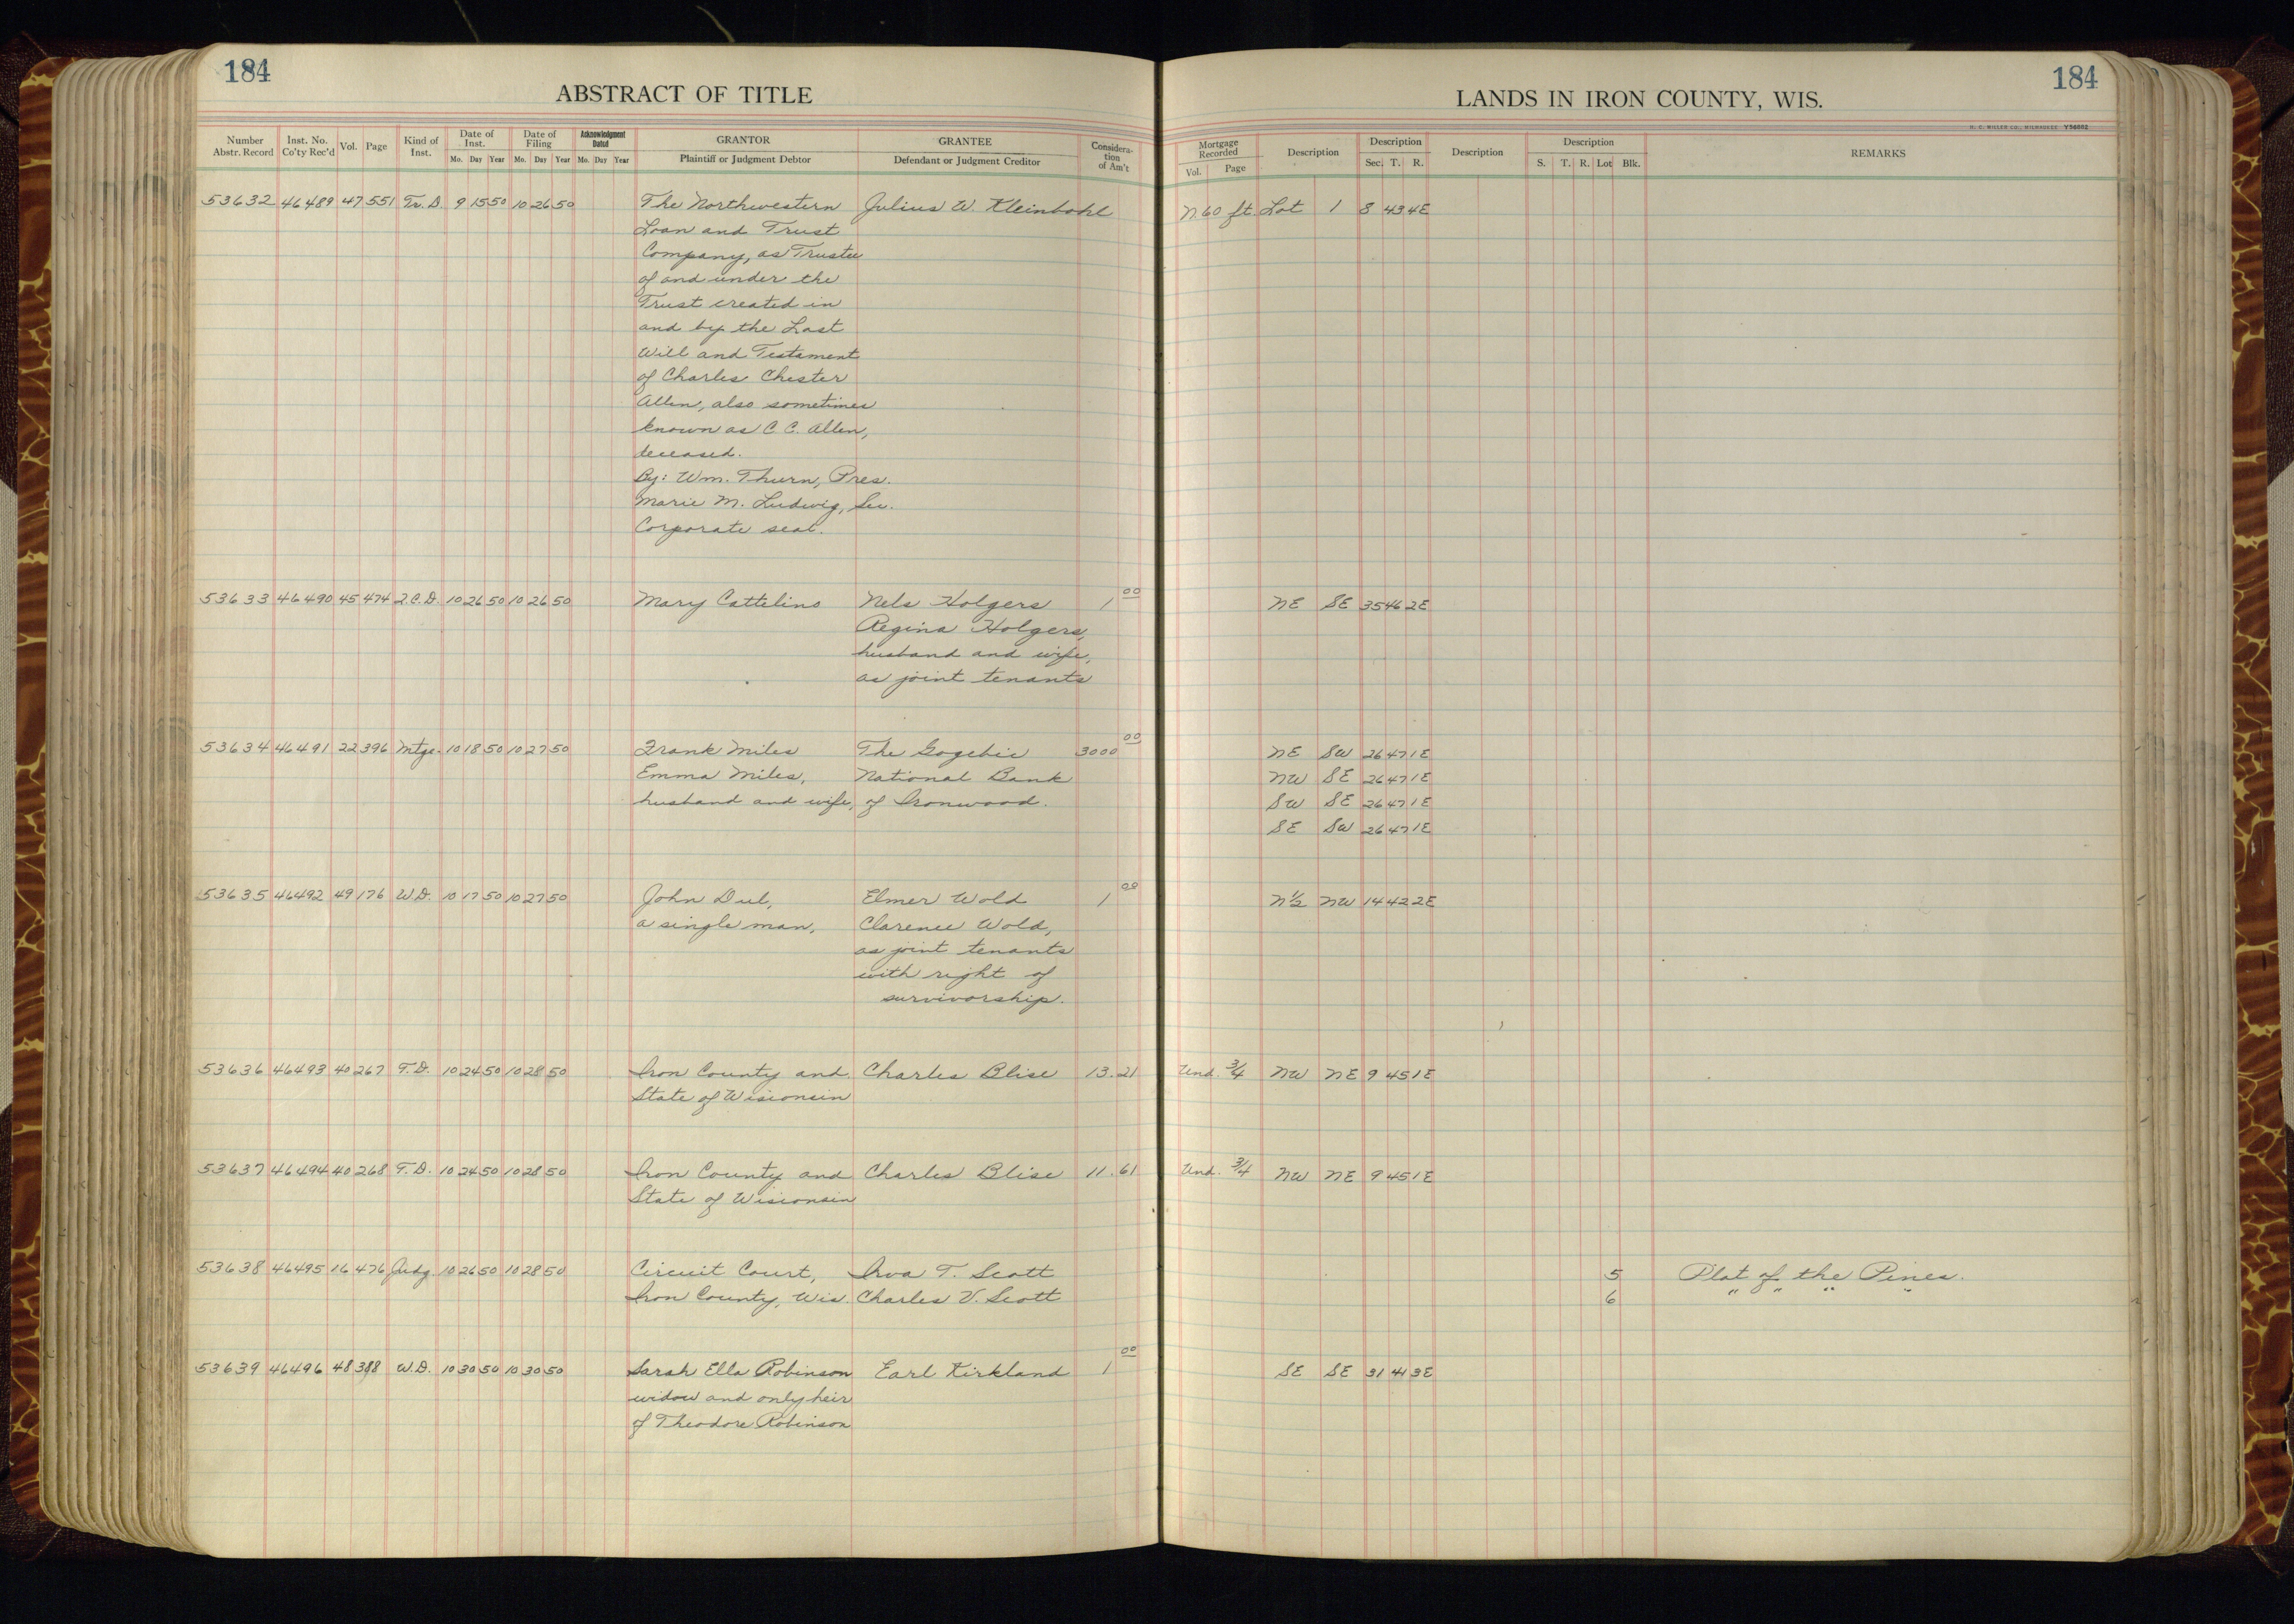 184
ABSTRACT OF TITLE
Number Abstr. Record | Inst. No. Co'ty Rec'd | Vol. | Page | Kind of Inst. | Date of Inst. Mo. Day Year | Date of Filing Mo. Day Year | Acknowledgment Dated Mo. Day Year | GRANTOR Plaintiff or Judgment Debtor | GRANTEE Defendant or Judgment Creditor | Considera-tion of Am't
184
LANDS IN IRON COUNTY, WIS.
H. C. MILLER CO., MILWAUKEE
Mortgage Recorded Vol. Page | Description | Description Sec. T. R. | Description | Description S. T. R. Lot Blk. | REMARKS
53632 46489 47 551 Tr. D. 9 15 50 10 26 50 The Northwestern Julius W. Kleinbohl N. 60 ft. Lot 1 8 43 4E
Loan and Trust
Company, as Trustee
of and under the
Trust created in
and by the Last
Will and Testament
of Charles Chester
Allen, also sometimes
known as C. C. Allen,
deceased.
By: Wm. Thurn, Pres.
Marie M. Ludwig, Sec.
Corporate seal.
53633 46490 45 474 Q.C.D. 10 26 50 10 26 50 Mary Cattelino Nels Holgers 1 00 NE SE 35 46 2E
Regina Holgers,
husband and wife,
as joint tenants
53634 46491 22 396 Mtge. 10 18 50 10 27 50 Frank Miles The Gogebic 3000 00 NE SW 26 47 1E
Emma Miles, National Bank NW SE 26 47 1E
husband and wife, of Ironwood. SW SE 26 47 1E
SE SW 26 47 1E
53635 46492 49 176 W.D. 10 17 50 10 27 50 John Dul, Elmer Wold 1 00 N½ NW 14 42 2E
a single man, Clarence Wold,
as joint tenants
with right of
survivorship.
53636 46493 40 267 T.D. 10 24 50 10 28 50 Iron County and Charles Blise 13.21 Und. 3/4 NW NE 9 45 1E
State of Wisconsin
53637 46494 40 268 T.D. 10 24 50 10 28 50 Iron County and Charles Blise 11.61 Und. 3/4 NW NE 9 45 1E
State of Wisconsin
53638 46495 16 476 Judg. 10 26 50 10 28 50 Circuit Court, Iva T. Scott 5 Plat of the Pines.
Iron County, Wis. Charles V. Scott 6 " " " "
53639 46496 48 388 W.D. 10 30 50 10 30 50 Sarah Ella Robinson Earl Kirkland 1 00 SE SE 31 41 3E
widow and only heir
of Theodore Robinson